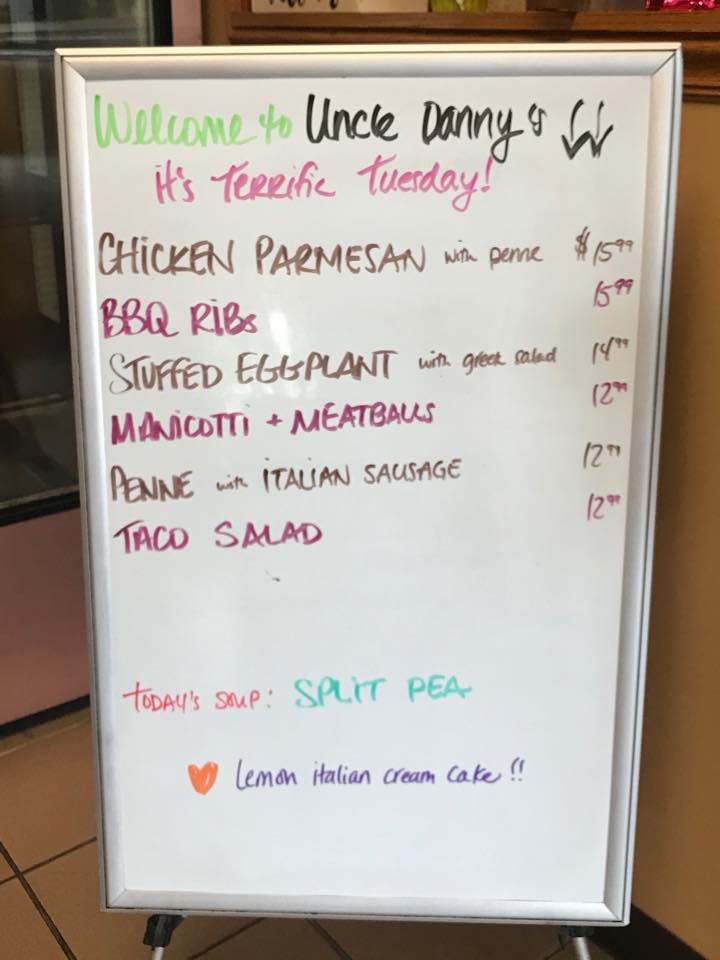 Welcome to Uncle Danny's
it's Terrific Tuesday!
CHICKEN PARMESAN with penne $15.99
BBQ RIBS 15.99
STUFFED EGGPLANT with greek salad 14.99
MANICOTTI + MEATBALLS 12.99
PENNE with ITALIAN SAUSAGE 12.99
TACO SALAD 12.99
TODAY'S SOUP: SPLIT PEA
Lemon italian cream cake!!